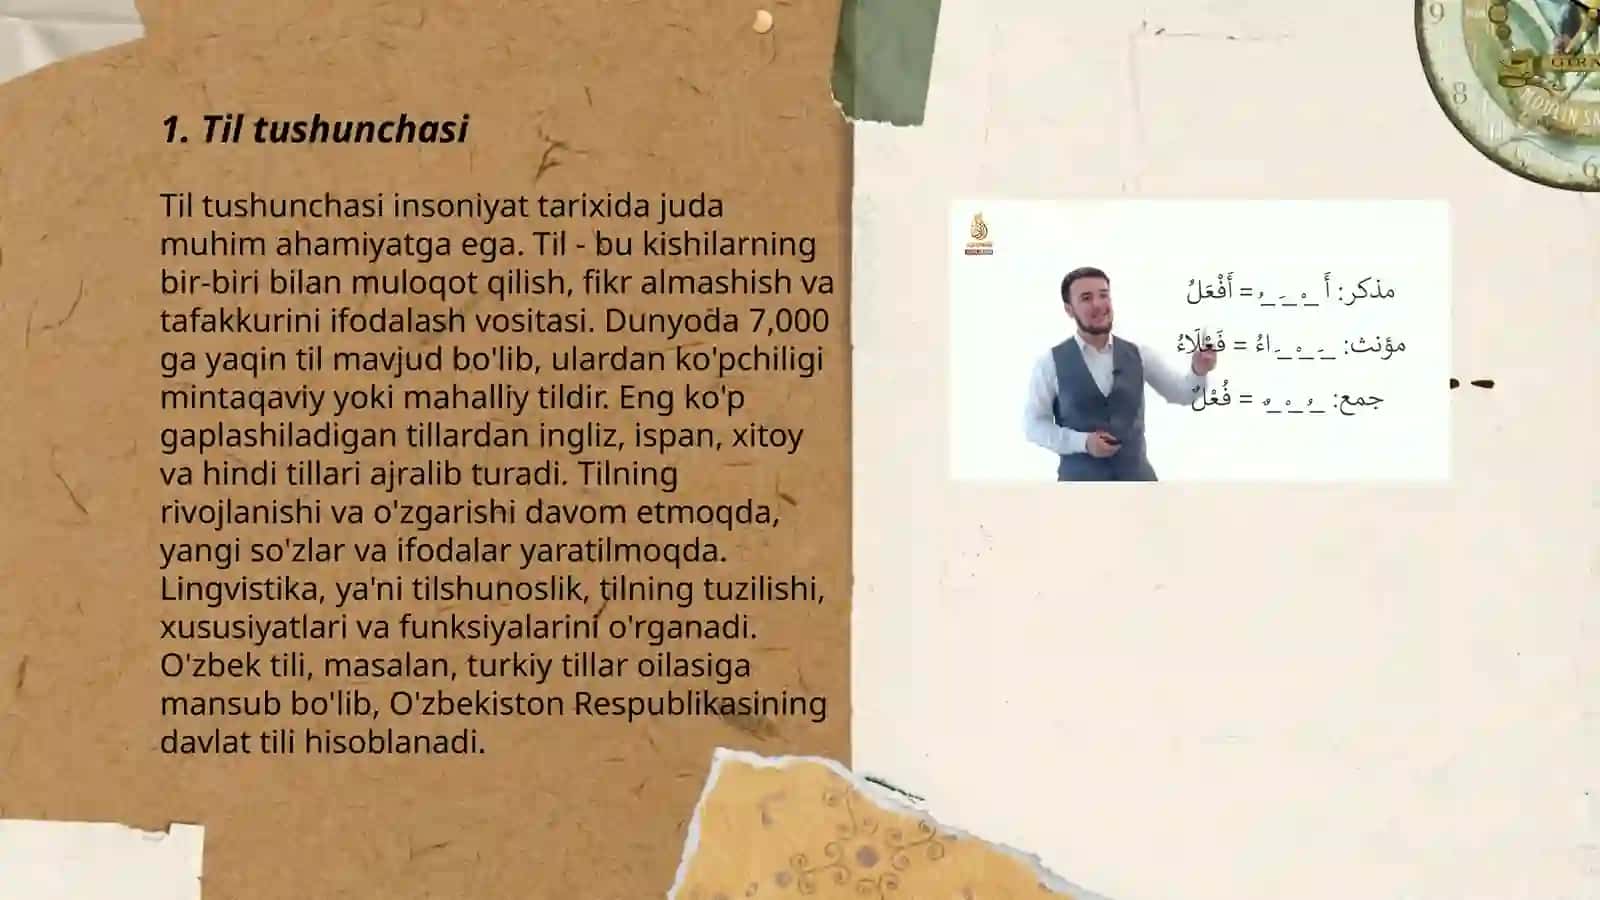 1. Til tushunchasi
Til tushunchasi insoniyat tarixida juda
muhim ahamiyatga ega. Til - bu kishilarning
bir-biri bilan muloqot qilish, fikr almashish va
tafakkurini ifodalash vositasi. Dunyoda 7,000
ga yaqin til mavjud bo'lib, ulardan ko'pchiligi
mintaqaviy yoki mahalliy tildir. Eng ko'p
gaplashiladigan tillardan ingliz, ispan, xitoy
va hindi tillari ajralib turadi. Tilning
rivojlanishi va o'zgarishi davom etmoqda,
yangi so'zlar va ifodalar yaratilmoqda.
Lingvistika, ya'ni tilshunoslik, tilning tuzilishi,
xususiyatlari va funksiyalarini o'rganadi.
O'zbek tili, masalan, turkiy tillar oilasiga
mansub bo'lib, O'zbekiston Respublikasining
davlat tili hisoblanadi.
مذكر: أَ _ْ _َ _ُ = أَفْعَلُ
مؤنث: _َ _ْ _َ اءُ = فَعْلَاءُ
جمع: _ُ _ْ _ٌ = فُعْلٌ
9
8
6
MOULIN